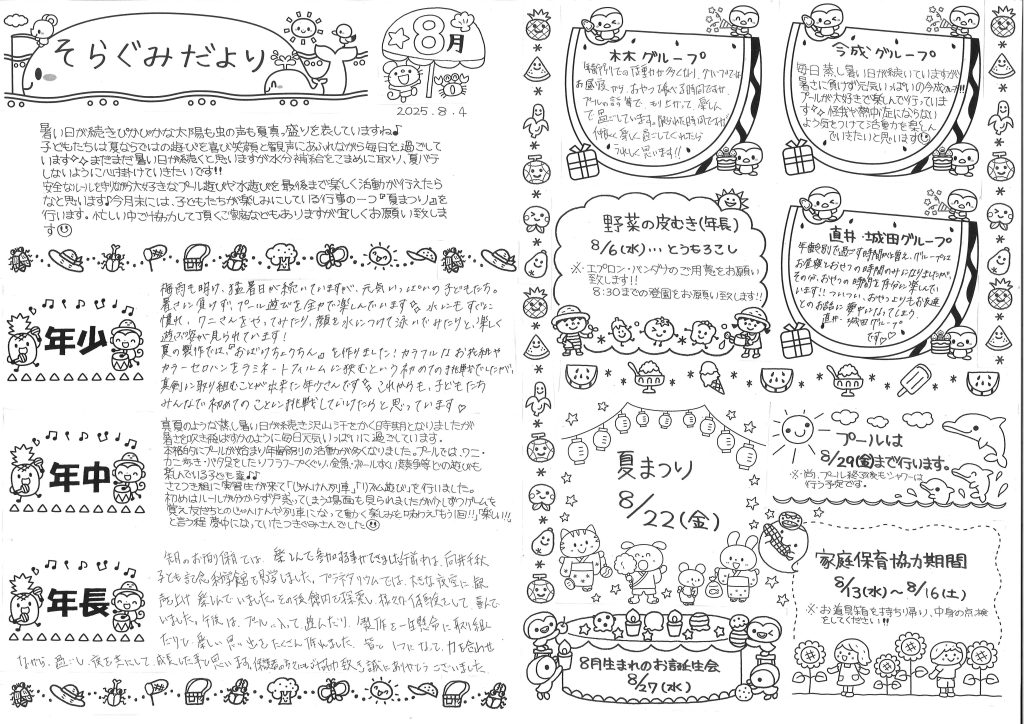 そらぐみだより
8月
2025.8.4
暑い日が続きぴかぴかな太陽も虫の声も夏真っ盛りを表していますね♪
子どもたちは夏ならではの遊びを喜び笑顔と歓声にあふれながら毎日を過ごして
います✧ まだまだ暑い日が続くと思いますが水分補給をこまめに取り、夏バテ
しないように心掛けていきたいです!!
安全なルールを守りながら大好きなプール遊びや水遊びを最後まで楽しく活動が行えたら
なと思います♪今月末には、子どもたちが楽しみにしている行事の一つ『夏まつり』を
行います。忙しい中ご協力して頂くご家庭などもありますが宜しくお願い致しま
す
年少
梅雨も明け、猛暑日が続いていますが、元気いっぱいの子どもたち。
暑さに負けず、プール遊びを全力で楽しんでいます 水にもすぐに
慣れ、ワニさんをやってみたり、顔を水につけて泳いでみたりと、楽しく
遊ぶ姿が見られています!
夏の製作では、『おばけちょうちん』を作りました!カラフルなお花紙や
カラーセロハンをラミネートフィルムに挟むという初めての挑戦でしたが、
真剣に取り組むことが出来た年少さんです これからも、子どもたち
みんなで初めてのことに挑戦していけたらと思っています♡
年中
真夏のような蒸し暑い日が続き沢山汗をかく時期となりましたが
暑さを吹き飛ばすかのように毎日元気いっぱいに過ごしています。
本格的にプールが始まり年齢別の活動が多くなりました。プールでは、ワニ・
カニ歩き・バタ足をしたりフラフープくぐり、金魚・ボール・水
楽しんでいる子どもたち♪
初めはルールが分からず戸惑ってしまう場面も見られましたが少しずつゲームを
覚え友だちとのじゃんけんや列車になって動く楽しみを味わえ「もう1回!!」「楽しい!!」
と言う程夢中になっていたつきぐみさんでした
年長
先月のお泊り保育では、楽しんで参加する事ができました。午前中は、向井千秋
子ども記念科学館を見学しました。プラネタリウムでは、大きな夜空に歓
声を上げ楽しんでいました。その後館内を探索し、様々な体験をして喜んで
いました。午後は、プールに入って遊んだり、製作を一生懸命に取り組ん
だりと楽しい思い出をたくさん作れました。皆と1つになって、力を合わせ
ながら、過ごし、夜を共にして成長したなと思います。保護者の方々にはご協力頂き誠にありがとうございました。
グループ
年齢別での活動が多くなり、グループでは
お昼寝、おやつ
プールの話等で、もり上がって楽しん
で過ごしています。限られた時間ですが
仲良く楽しく過ごしてくれたら
うれしく思います!!
今成グループ
毎日蒸し暑い日が続いていますが
暑さに負けず元気いっぱいの今成グループ!!
プールが大好きで楽しんで行っていま
す 怪我や熱中症にならない
よう気をつけて活動を楽しん
でいきたいと思います
野菜の皮むき(年長)
8/6(水)…とうもろこし
※・エプロン・バンダナのご用意をお願い
致します!!
8:30までの登園をお願い致します!!
直井・城田グループ
年齢別で過ごす時間が増え、グループでは
お昼寝とおやつの時間のみになりましたが、
その分、おやつの時間を存分に楽しんで
います!! ついつい、おやつよりもお友達
とのお話に夢中になってしまう、
直井・城田グループ
です♡
夏まつり
8/22(金)
プールは
8/29(金)まで行います。
※尚、プール終了後もシャワーは
行う予定です。
家庭保育協力期間
8/13(水)~8/16(土)
※お道具箱を持ち帰り、中身の点検
をしてください!!
8月生まれのお誕生会
8/27(水)